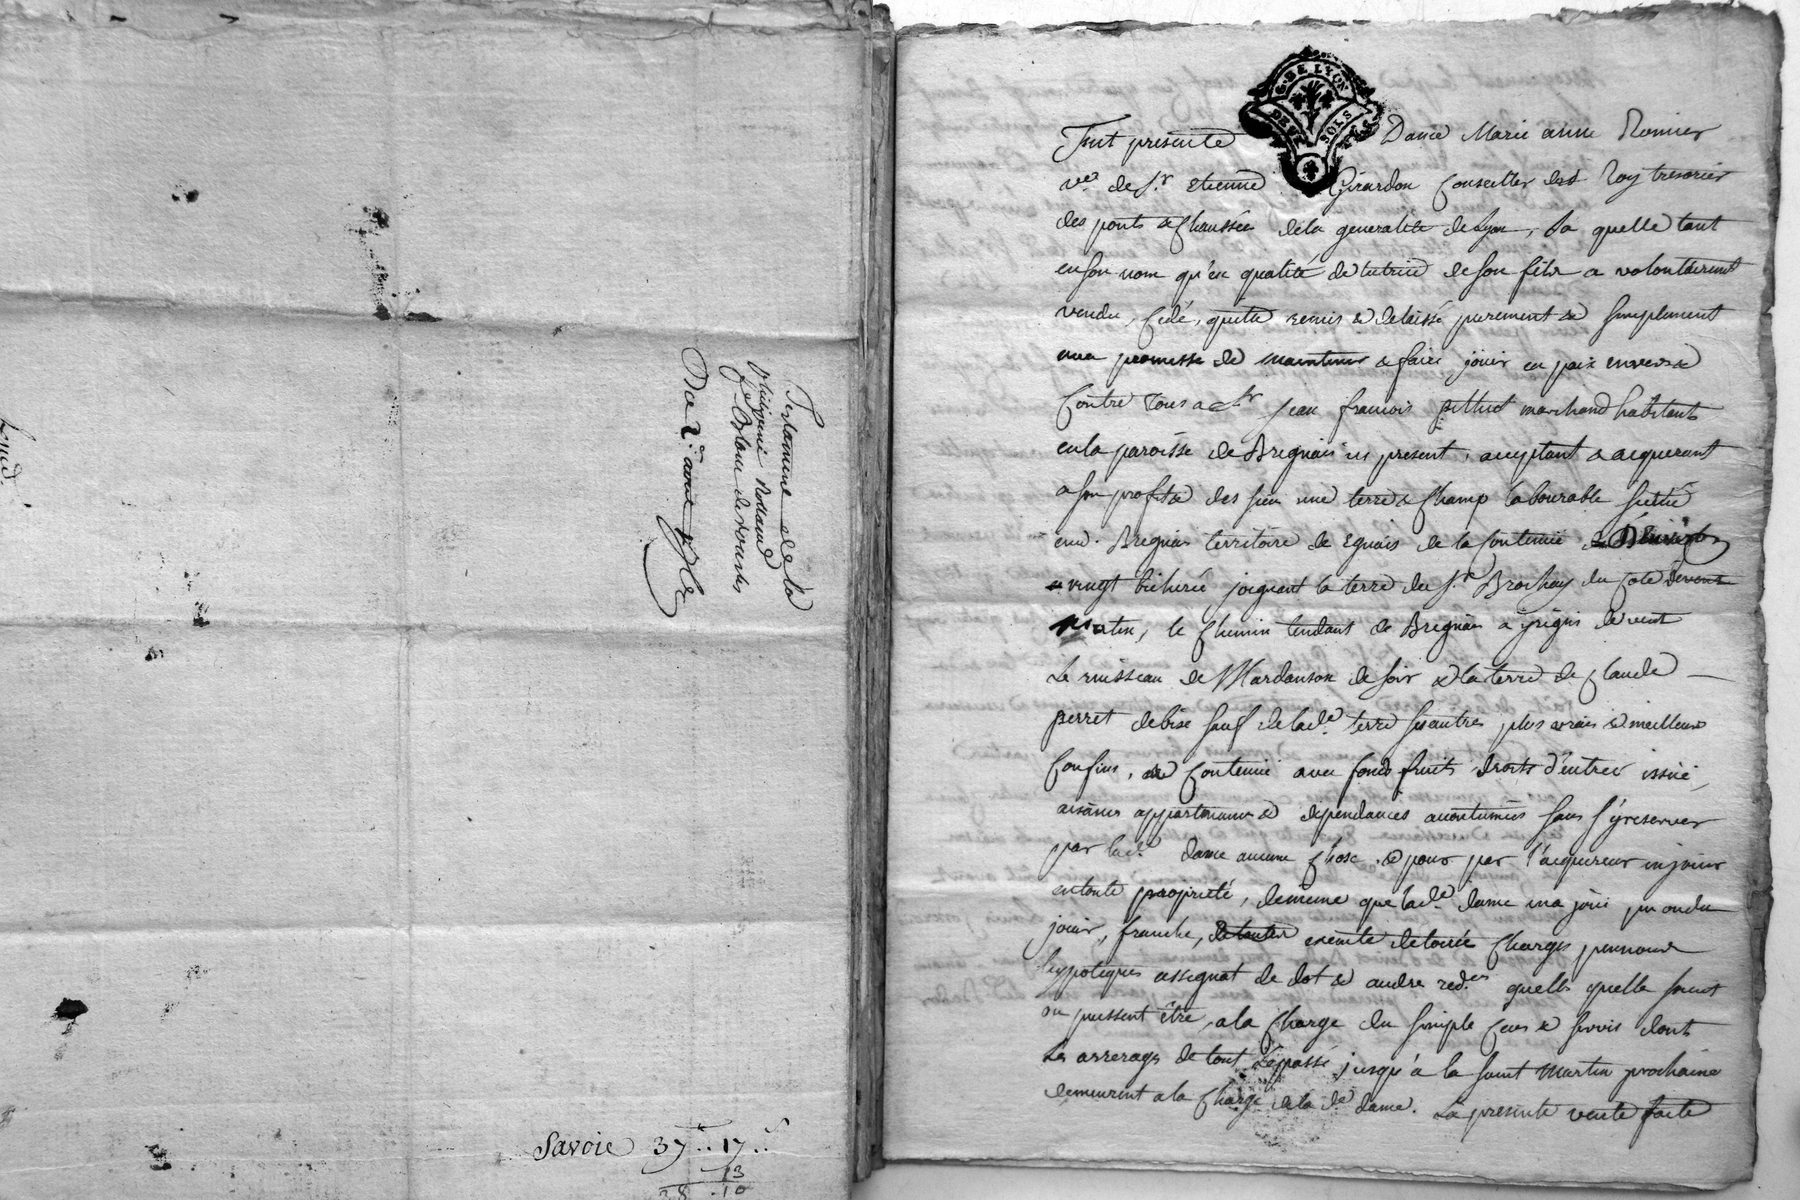 Testament de la
f
Du 2e aout
Savoie 37 .. 17 ..
13
38 . 10
G. DE LYON
DEUX SOLS
Fut presente Dame Marie anne Romier
ve. de Sr. Etienne Girardon Conseiller du Roy tresorier
des ponts & Chaussées de la generalité de Lyon, La quelle tant
en son nom qu'en qualité de tutrice de son fils a volontairemt
vendu, Cédé, quitté remis & delaissé purement & simplement
avec promesse de maintenir & faire jouir en paix envers &
Contre tous a Sr. Jean francois pitiot marchand habitant
en la paroisse de Brignais ici present, acceptant & acquerant
a son profit & des siens une terre & Champ labourable situé
aud. Brignais territoire de de la Contenue
vingt bicherée joignant la terre du Sr. Brochay du Coté
matin, le Chemin tendant de Brignais a yrignis de vent
Le ruisseau de Mardanson de soir & la terre de Claude
perret de bise sauf de lade. terre ses autres plus vrais & meilleurs
Confins, & Contenue avec fonds fruits droits d'entrer issüe,
aisances appartenances & dependances accoutumées sans s'y reserver
par lade. dame aucune Chose, & pour par l'acquereur en jouir
en toute proprieté, de meme que lade. dame en a joüi pu ou du
jouir, franche, de toutes exempte de toutes Charges pensions
hypoteques assignat de dot & autre redces quells quelle soient
ou puissent être, a la Charge du simple Cens & servis dont
Les arrerages de tout le passé jusqu'à la saint Martin prochaine
demeurent a la Charge de la de dame. La presente vente faite